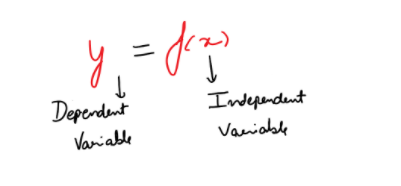 y = f(x)
Dependent Variable
Independent Variable